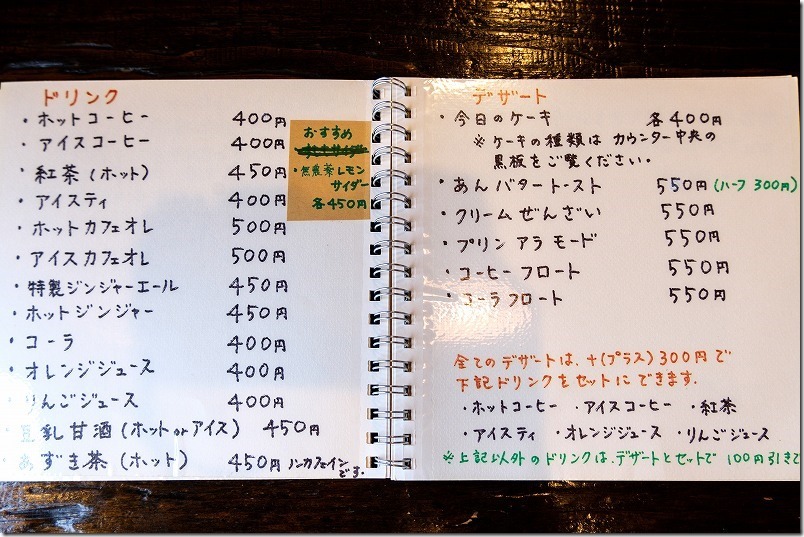 ドリンク
・ホットコーヒー 400円
・アイスコーヒー 400円
・紅茶(ホット) 450円
・アイスティ 400円
・ホットカフェオレ 500円
・アイスカフェオレ 500円
・特製ジンジャーエール 450円
・ホットジンジャー 450円
・コーラ 400円
・オレンジジュース 400円
・りんごジュース 400円
・豆乳甘酒(ホットorアイス) 450円
・あずき茶(ホット) 450円 ノンカフェイン
です.
おすすめ
・無農薬レモン
サイダー
各450円
デザート
・今日のケーキ 各400円
※ケーキの種類は カウンター中央の
黒板をご覧ください。
・あんバタートースト 550円(ハーフ 300円)
・クリームぜんざい 550円
・プリン アラ モード 550円
・コーヒーフロート 550円
・コーラフロート 550円
全てのデザートは、+(プラス)300円で
下記ドリンクをセットにできます.
・ホットコーヒー ・アイスコーヒー ・紅茶
・アイスティ ・オレンジジュース ・りんごジュース
※上記以外のドリンクは、デザートとセットで 100円引きで